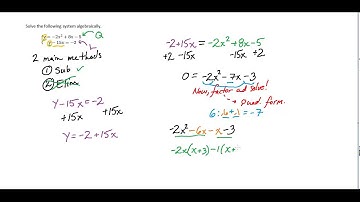 Solve the following system algebraically.
y = -2x² + 8x - 5 Q
y - 15x = -2 L
2 main methods
① Sub ✓
② Elim
y - 15x = -2
+15x +15x
y = -2 + 15x
-2 + 15x = -2x² + 8x - 5
+2 -15x +2 -15x
0 = -2x² - 7x - 3
Now, factor and solve!
→ Quad. form.
6 : -6 + -1 = -7
-2x² - 6x - x - 3
-2x(x+3) - 1(x+